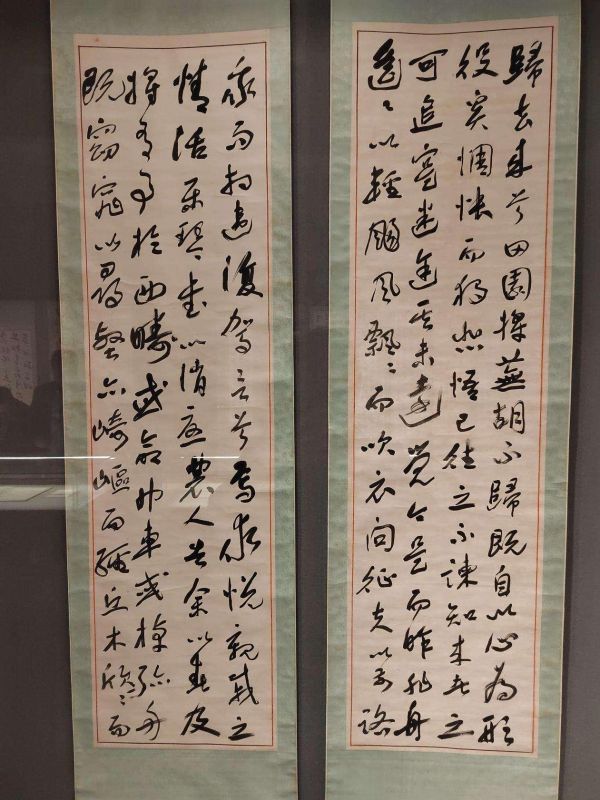 歸去來兮田園將蕪胡不歸既自以心為形
役奚惆悵而獨悲悟已往之不諫知來者之
可追寔迷途其未遠覺今是而昨非舟
遙〻以輕颺風飄〻而吹衣問征夫以前路
我而相遺復駕言兮焉求悅親戚之
情話樂琴書以消憂農人告余以春及
將有事於西疇或命巾車或棹孤舟
既窈窕以尋壑亦崎嶇而經丘木欣〻而